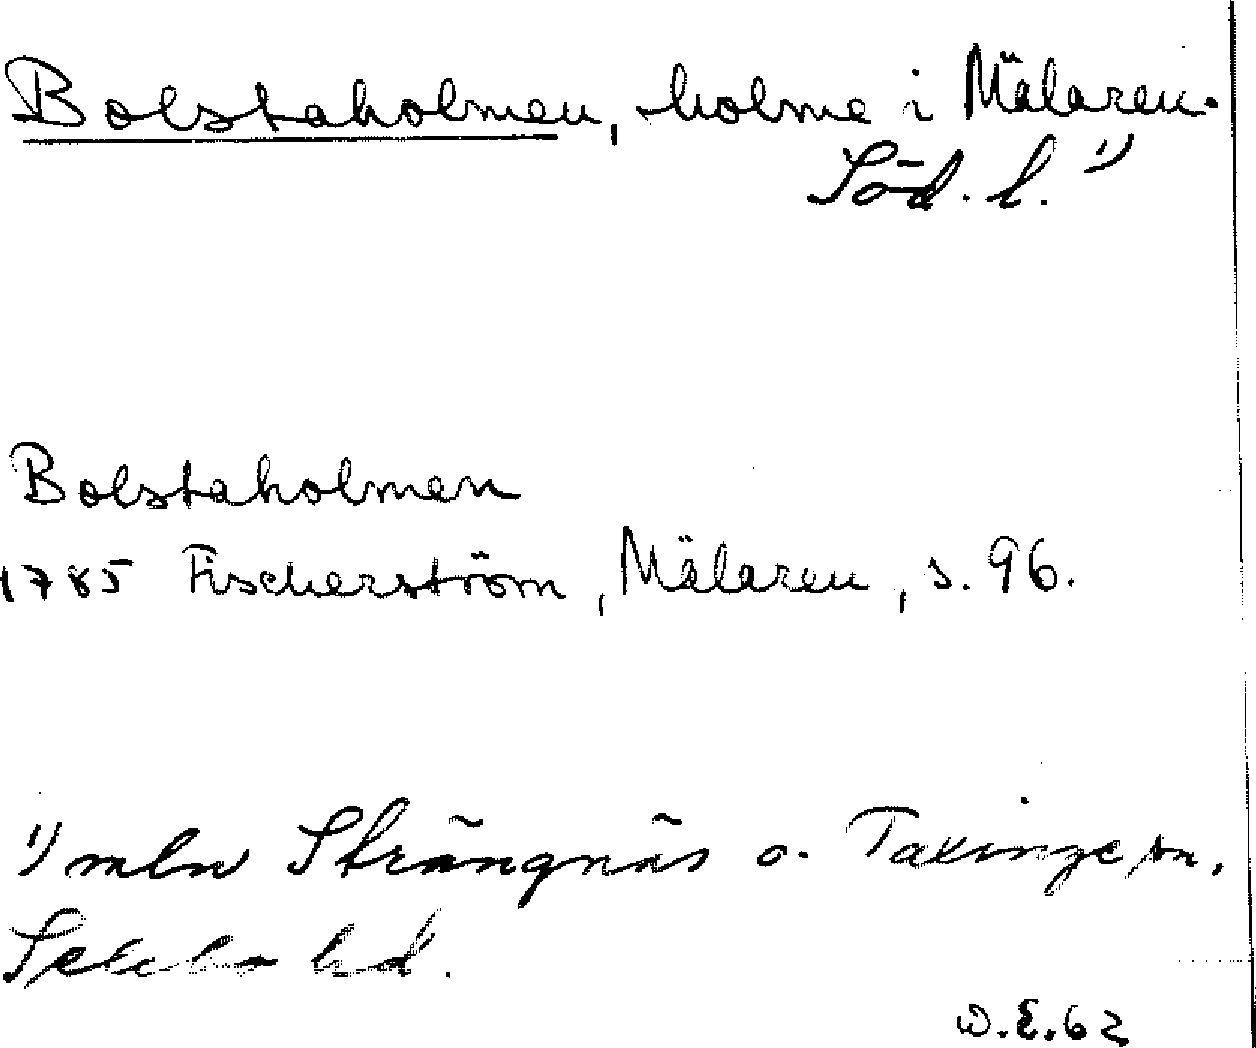 Bolstaholmen, holme i Mälaren.
Söd. l. 1)
Bolstaholmen
1785 Fischerström, Mälaren, s. 96.
1) mln Strängnäs o. Taxinge sn,
Selebo hd.
W.E.62